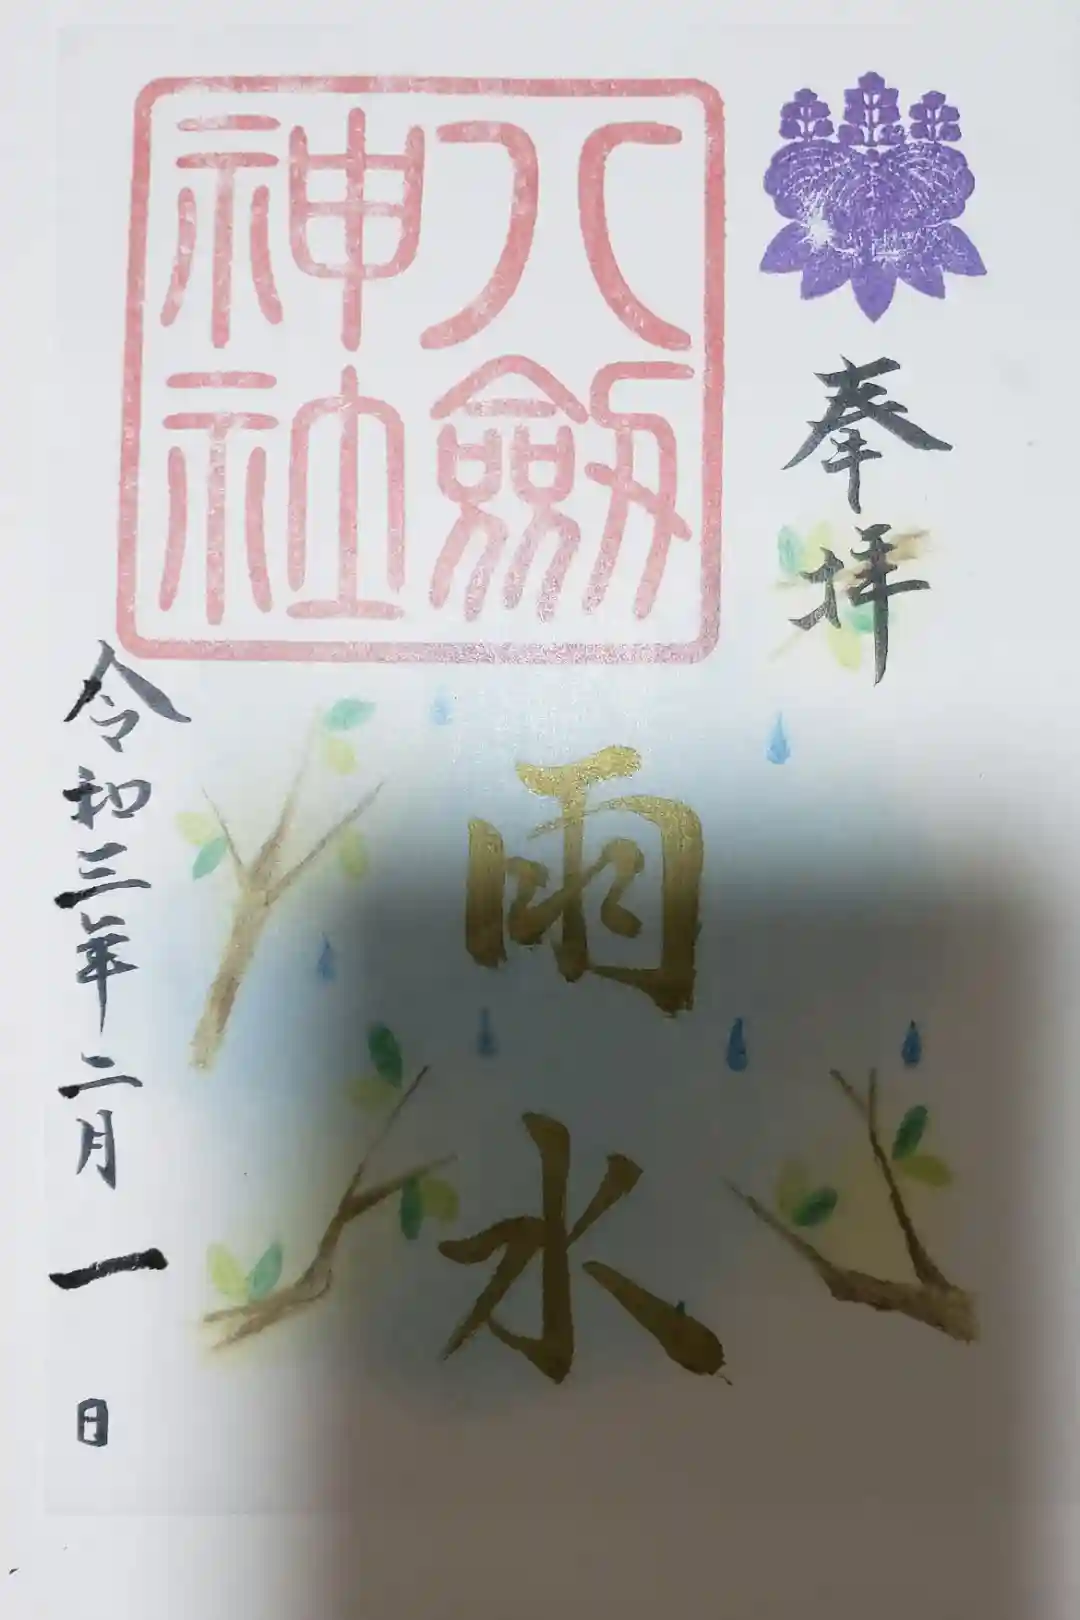 奉拝
八劔
神社
雨水
令和三年二月一日